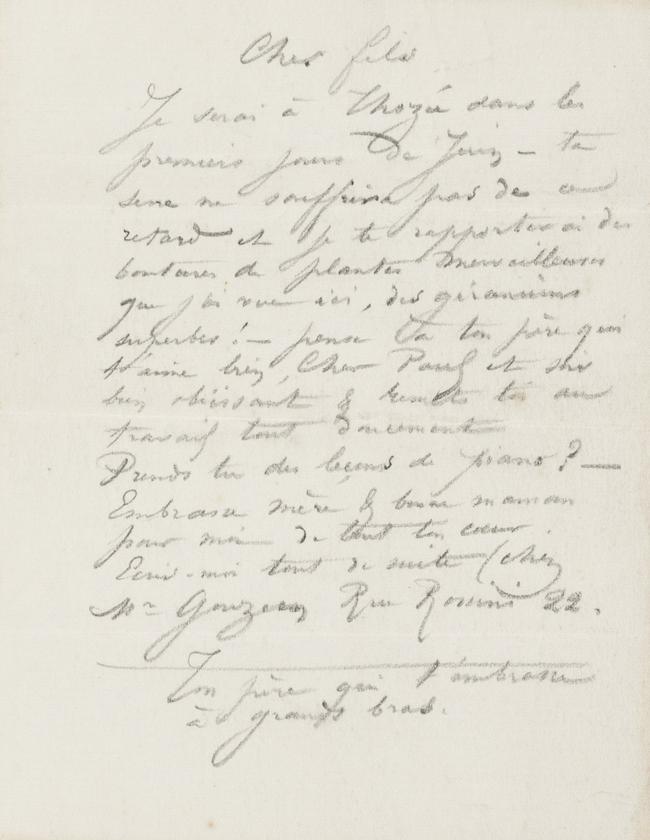 Cher fils
Je serai à Thozée dans les
premiers jours de Juin – ta
serre ne souffrira pas de ce
retard et je te rapporterai des
boutures de plantes merveilleuses
que j'ai vues ici, des géraniums
superbes! – pense à ton père qui
t'aime bien, Cher Paul et sois
bien obéissant & remets toi au
travail tout doucement
Prends tu des leçons de piano? —
Embrasse mère & bonne maman
pour moi de tout ton cœur.
Ecris-moi tout de suite (chez
Mr Gouzien Rue Rossini 22.
Ton père qui t'embrasse
à grands bras.